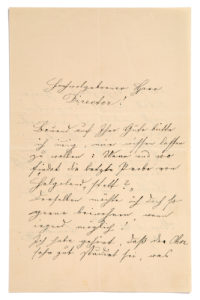 Hochwolgeborner Herr
Director!
Bauend auf Ihre Güte bitte
ich mich, nur wissen lassen
zu wollen: Wann und wo
findet die letzte Probe von
"Helgoland" statt?
Derselben möchte ich doch so
gerne beiwohnen, wenn
irgend möglich!
Ich habe gehört, daß der Chor
sehr gut studiert sei, was